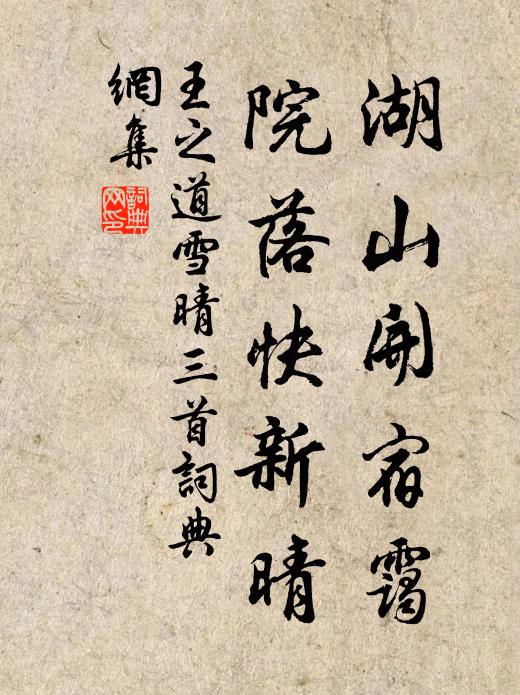 湖山開宿靄
院落快新晴
王之道雪晴三首詞典
網集
詞典
網印